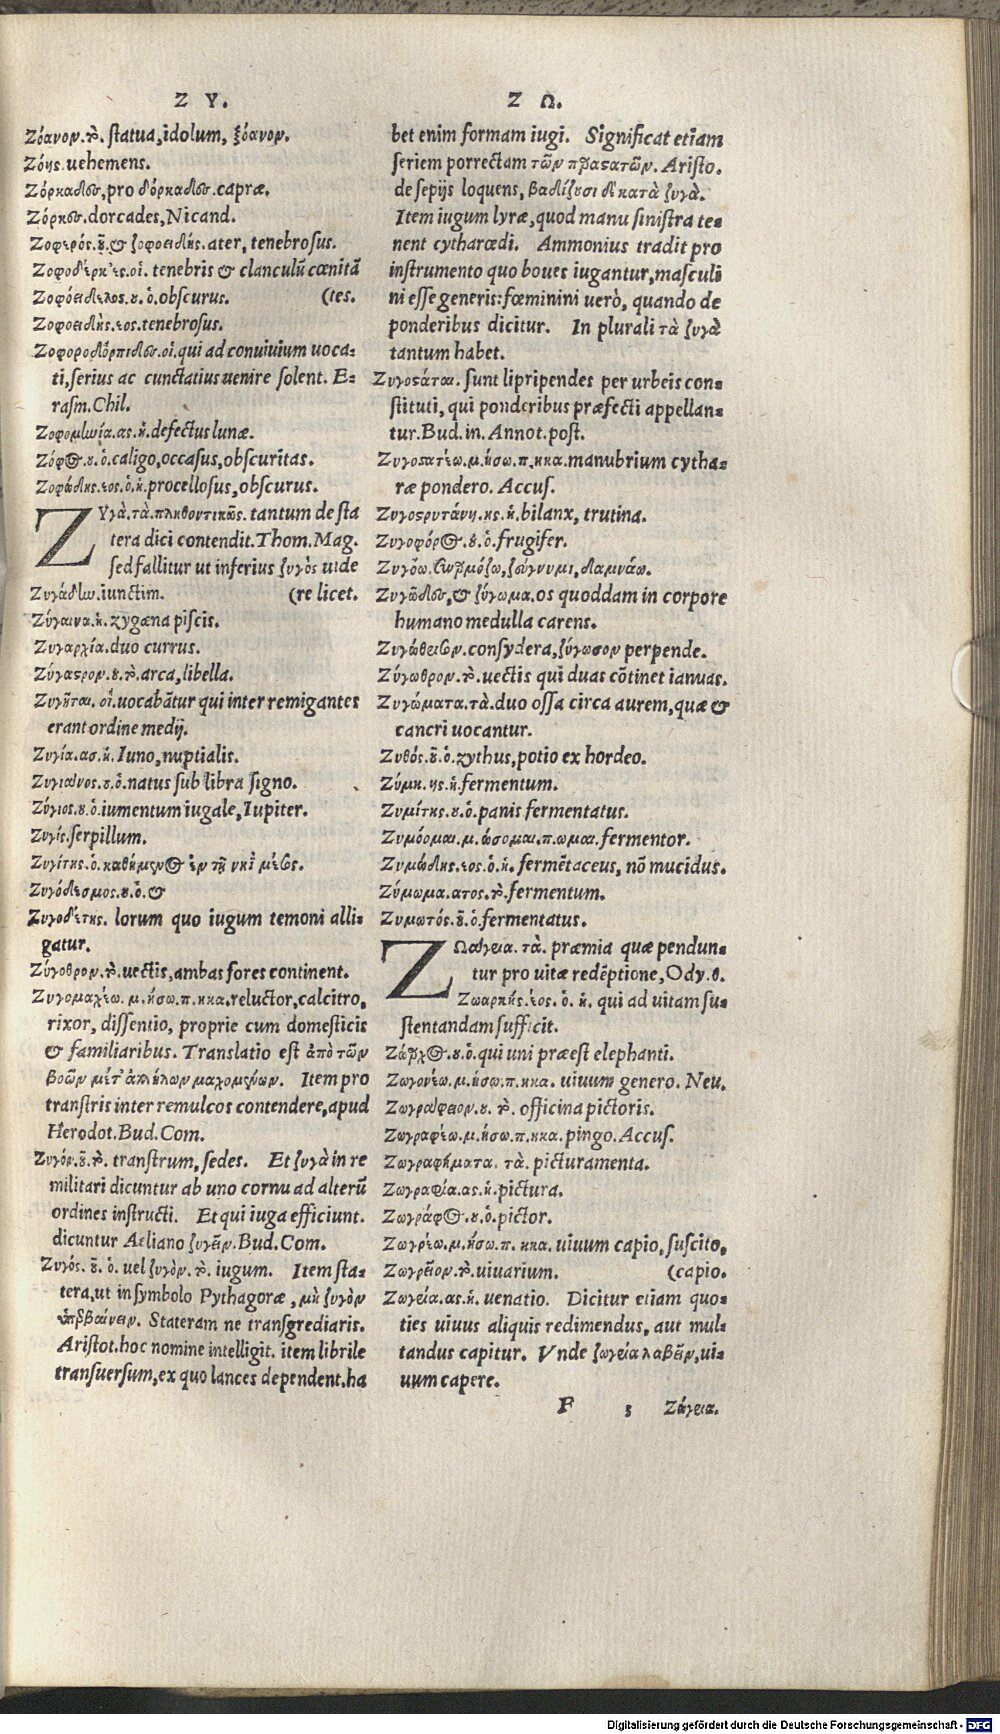 Ζ Υ.
Ζόανον.τὸ. statua, idolum, ξόανον.
Ζόης. uehemens.
Ζόρκαδες, pro δόρκαδες. capræ.
Ζόρκες. dorcades, Nicand.
Ζοφερός.οῦ. & ζοφοειδής. ater, tenebrosus.
Ζοφοδερκέες.οἱ. tenebris & clanculũ cœnitã
Ζοφόειδελος.ου.ὁ. obscurus. (tes.
Ζοφοειδὴς.εος. tenebrosus.
Ζοφοροδόρπιδες.οἱ. qui ad conuiuium uoca-
ti, serius ac cunctatius uenire solent. E-
rasm. Chil.
Ζοφομηνία.ας.ἡ. defectus lunæ.
Ζόφος.ου.ὁ. caligo, occasus, obscuritas.
Ζοφώδης.εος.ὁ.ἡ. procellosus, obscurus.
ΖΥγὰ.τὰ. πληθυντικῶς. tantum de sta
tera dici contendit. Thom. Mag.
sed fallitur ut inferius ζυγὸς uide
Ζυγάδην. iunctim. (re licet.
Ζύγαινα.ἡ. zygæna piscis.
Ζυγαρχία. duo currus.
Ζύγαστρον.ου.τὸ. arca, libella.
Ζυγῖται.οἱ. uocabãtur qui inter remigantes
erant ordine medij.
Ζυγία.ας.ἡ. Iuno, nuptialis.
Ζυγιανος.ου.ὁ. natus sub libra signo.
Ζύγιος.ου.ὁ. iumentum iugale, Iupiter.
Ζυγίς. serpillum.
Ζυγίτης.ὁ. καθήμενος ἐν τῇ νηῒ μέσος.
Ζυγόδεσμος.ου.ὁ. &
Ζυγοδέτης. lorum quo iugum temoni alli-
gatur.
Ζύγοθρον.τὸ. uectis, ambas fores continent.
Ζυγομαχέω.μ.ήσω.π.ηκα. reluctor, calcitro,
rixor, dissentio, proprie cum domesticis
& familiaribus. Translatio est ἀπὸ τῶν
βοῶν μετ᾽ ἀλλήλων μαχομένων. Item pro
transtris inter remulcos contendere, apud
Herodot. Bud. Com.
Ζυγόν.οῦ.τὸ. transtrum, sedes. Et ζυγὰ in re
militari dicuntur ab uno cornu ad alterũ
ordines instructi. Et qui iuga efficiunt.
dicuntur Aeliano ζυγεῖν. Bud. Com.
Ζυγός.οῦ.ὁ. uel ζυγὸν.τὸ. iugum. Item sta-
tera, ut in symbolo Pythagoræ, μὴ ζυγὸν
ὑπερβαίνειν. Stateram ne transgrediaris.
Aristot. hoc nomine intelligit. item librile
transuersum, ex quo lances dependent. ha
Ζ Ω.
bet enim formam iugi. Significat etiam
seriem porrectam τῶν προστατῶν. Aristo.
de sepijs loquens, βαδίζουσι δὲ κατὰ ζυγὰ.
Item iugum lyræ, quod manu sinistra te-
nent cytharœdi. Ammonius tradit pro
instrumento quo boues iugantur, masculi
ni esse generis: fœminini uerò, quando de
ponderibus dicitur. In plurali τὰ ζυγὰ
tantum habet.
Ζυγοστάται. sunt lipripendes per urbeis con-
stituti, qui ponderibus præfecti appellan-
tur. Bud. in. Annot. post.
Ζυγοστατέω.μ.ήσω.π.ηκα. manubrium cytha-
ræ pondero. Accus.
Ζυγοστρυτάνη.ης.ἡ. bilanx, trutina.
Ζυγοφόρος.ου.ὁ. frugifer.
Ζυγόω. συναρμόζω, ζεύγνυμι, δαμνάω.
Ζυγῶδες, & ζύγωμα. os quoddam in corpore
humano medulla carens.
Ζυγώθεισον. consydera, ζύγωσον perpende.
Ζύγωθρον.τὸ. uectis qui duas cõtinet ianuas.
Ζυγώματα.τὰ. duo ossa circa aurem, quæ &
cancri uocantur.
Ζυθός.οῦ.ὁ. zythus, potio ex hordeo.
Ζύμη.ης.ἡ. fermentum.
Ζυμίτης.ου.ὁ. panis fermentatus.
Ζυμόομαι.μ.ώσομαι.π.ωμαι. fermentor.
Ζυμώδης.εος.ὁ.ἡ. fermẽtaceus, nõ mucidus.
Ζύμωμα.ατος.τὸ. fermentum.
Ζυμωτός.οῦ.ὁ. fermentatus.
ΖΩάγεια.τὰ. præmia quæ pendun-
tur pro uitæ redẽptione, Ody. θ.
Ζωαρκής.έος.ὁ.ἡ. qui ad uitam su-
stentandam sufficit.
Ζώαρχος.ου.ὁ. qui uni præest elephanti.
Ζωγονέω.μ.ήσω.π.ηκα. uiuum genero. Neu.
Ζωγραφεῖον.ου.τὸ. officina pictoris.
Ζωγραφέω.μ.ήσω.π.ηκα. pingo. Accus.
Ζωγραφήματα.τὰ. picturamenta.
Ζωγραφία.ας.ἡ. pictura.
Ζωγράφος.ου.ὁ. pictor.
Ζωγρέω.μ.ήσω.π.ηκα. uiuum capio, suscito,
Ζωγρεῖον.τὸ. uiuarium. (capio.
Ζωγεία.ας.ἡ. uenatio. Dicitur etiam quo-
ties uiuus aliquis redimendus, aut mul-
tandus capitur. Vnde ζωγεία λαβεῖν, ui-
uum capere.
F 3 Ζάγεια.
Digitalisierung gefördert durch die Deutsche Forschungsgemeinschaft - DFG